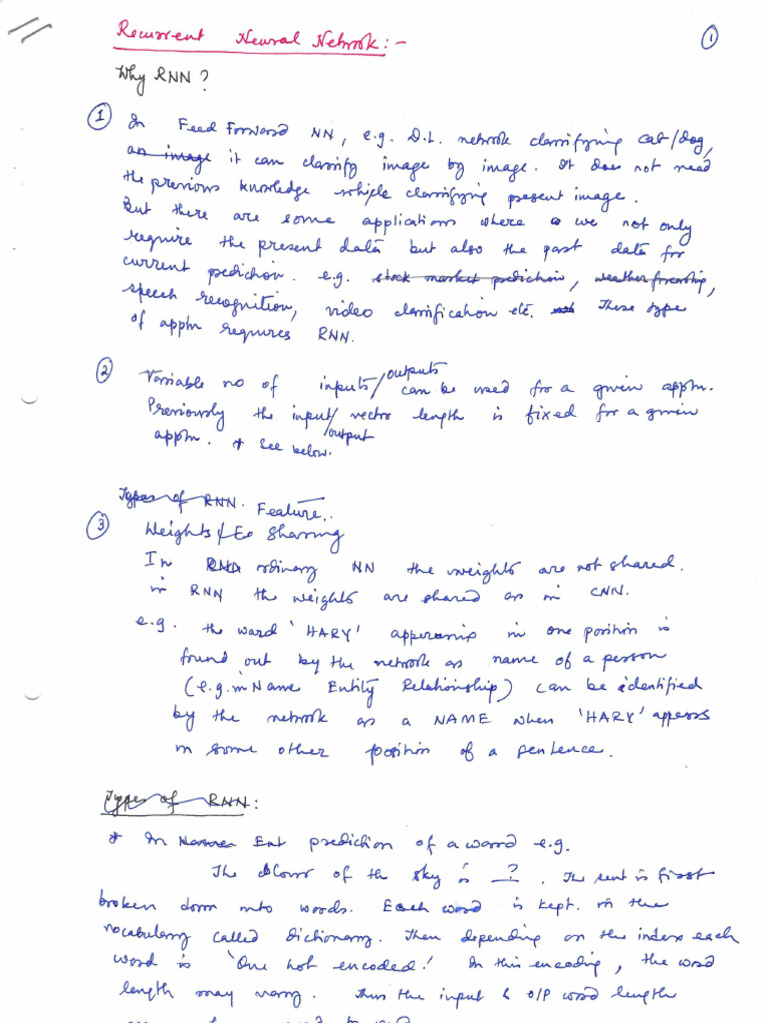 Recurrent Neural Network:-
1
Why RNN?
1 In Feed Forward NN, e.g. D.L. network classifying cat/dog,
an image it can classify image by image. It does not need
the previous knowledge while classifying present image.
But there are some applications where we not only
require the present data but also the past data for
current prediction. e.g. stock market prediction, weather forecasting,
speech recognition, video classification etc. These type
of appln requires RNN.
2 Variable no of inputs/outputs can be used for a given appln.
Previously the input/output vector length is fixed for a given
appln. * See below.
Types of RNN. Feature..
3 Weights Sharing
In ordinary NN the weights are not shared.
in RNN the weights are shared as in CNN.
e.g. the word 'HARY' appearing in one position is
found out by the network as name of a person
(e.g. in Name Entity Relationship) can be identified
by the network as a NAME when 'HARY' appears
in some other position of a sentence.
Types of RNN:
* In Ent prediction of a word e.g.
The colour of th sky is ? . The sent is first
broken down into words. Each word is kept in the
vocabulary called dictionary. Then depending on the index each
word is 'One hot encoded'. In this encoding, the word
length may vary. Thus the input & O/P word length